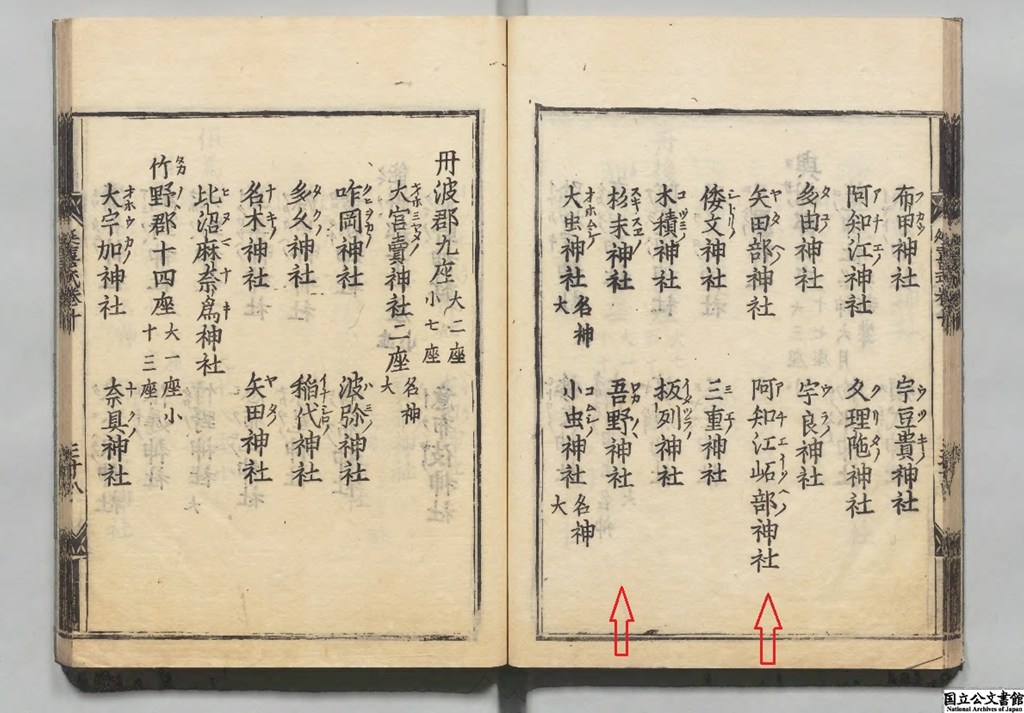 布甲神社　宇豆貴神社
阿知江神社　久理陁神社
多由神社　宇良神社
矢田部神社　阿知江峅部神社
倭文神社　三重神社
木積神社　板列神社
杉末神社　吾野神社
大虫神社 名神大　小虫神社 名神大
丹波郡九座 大二座 小七座
大宮賣神社二座 名神大
咋岡神社　波弥神社
多久神社　稲代神社
名木神社　矢田神社
比沼麻奈為神社
竹野郡十四座 大一座 小十三座
大宇加神社　奈具神社
延喜式巻十
国立公文書館
National Archives of Japan